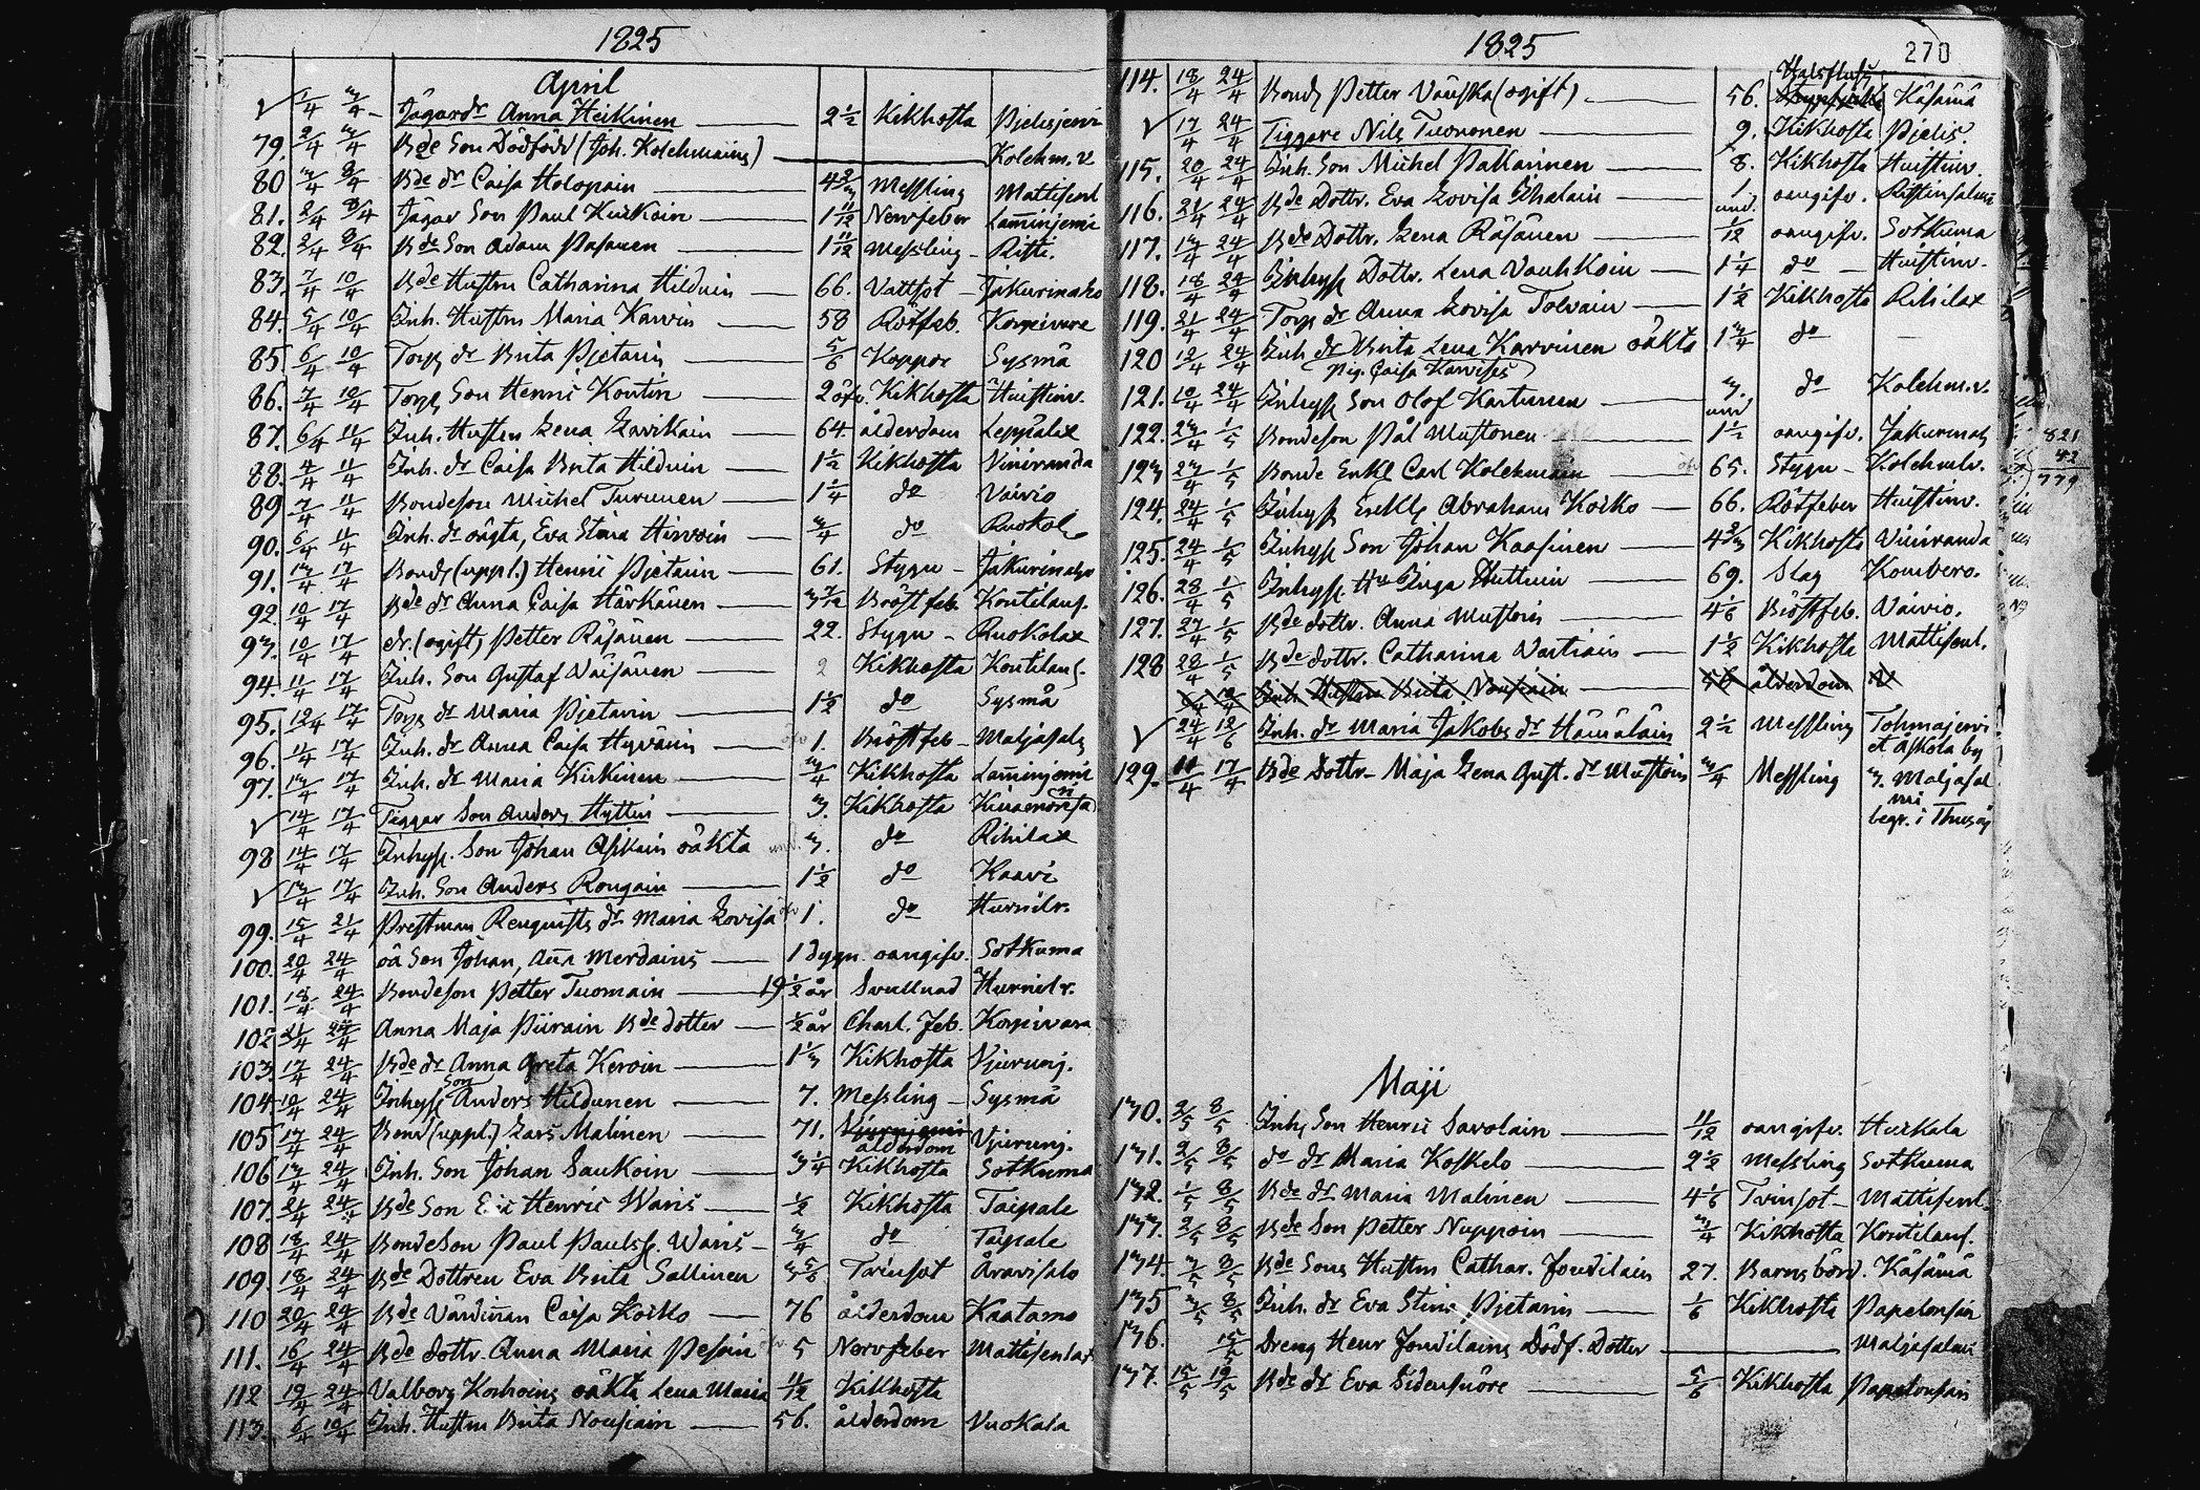 1825
April
√ 1/4 3/4 Jägardr Anna Heikinen 2 1/2 Kikhosta Pielisjervi
79. 2/4 3/4 Bde Son Dödfödd (Joh. Kolehmains) Kolehm. v
80 3/4 8/4 Bde dr Caisa Holopain 4 2/3 Messling Mattisenl
81. 2/4 8/4 Jägar Son Paul Kurkoin 1 11/12 Nervfeber Laminjervi
82. 2/4 8/4 Bde Son Adam Pasanen 1 11/12 Messling Risti.
83. 7/4 10/4 Bde Hustru Catharina Hilduin 66. Vattsot Jakurinaho
84. 5/4 10/4 Inh. Hustru Maria Karvin 58 Rötfeb. Korpivare
85. 6/4 10/4 Torp dr Brita Pjetarin 5/6 Koppor Sysmä
86. 7/4 10/4 Torp Son Henric Kontin 2 öfv. Kikhosta Huistinv.
87. 6/4 11/4 Inh. Hustru Lena Lavikain 64. ålderdom Leppälax
88. 4/4 11/4 Inh. dr Caisa Brita Hilduin 1 1/2 Kikhosta Viniranda
89 7/4 11/4 Bondeson Michel Turunen 1 1/4 do Vaivio
90. 6/4 11/4 Inh. dr oägta, Eva Stina Hirvoin 3/4 do Ruokol
91. 13/4 17/4 Bond (uppl.) Henric Pjetarin 61. Stygn Jakurinaho
92. 10/4 17/4 Bde dr Anna Caisa Härkänen 3 7/12 Bröstfeb. Kontilax.
93. 10/4 17/4 dr. (ogift) Petter Räsänen 22. Stygn Ruokolax
94. 11/4 17/4 Inh. Son Gustaf Väisänen 2 Kikhosta Kontilax.
95. 12/4 17/4 Torp dr Maria Pjetarin 1 1/2 do Sysmå
96. 11/4 17/4 Inh. dr Anna Caisa Hyvärin öfv 1. Bröstfeb Maljasalm
97. 13/4 17/4 Inh. dr Maria Kirkinen 3/4 Kikhosta Laminjervi
√ 14/4 17/4 Tiggar Son Anders Hyttin 3. Kikhosta
98 14/4 17/4 Inhyss. Son Johan Asikain oäkta und. 3. do Rihilax
√ 13/4 17/4 Inh. Son Anders Rongain 1 1/2 do Kaavi
99. 15/4 21/4 Prestman Renquists dr Maria Lovisa öfv 1. do Hurnilr.
100. 20/4 24/4 oä Son Johan, Aña Merdains 1 dygn oangifv. Sotkuma
101. 18/4 24/4 Bondeson Petter Tuomain 19 1/2 år Svullnad Hurnilr.
102 21/4 24/4 Anna Maja Piirain Bde dotter 1/2 år Charl. feb. Korpivara
103. 17/4 24/4 Bde dr Anna Greta Keroin 1 1/3 Kikhosta Vjurunj.
104. 10/4 24/4 Inhyss Son Anders Hildunen 7. Messling Sysmä
105 17/4 24/4 Bond (uppl.) Lars Malinen 71. ålderdom Vjurunj.
106 13/4 24/4 Inh. Son Johan Saukoin 3 1/4 Kikhosta Sotkuma
107. 21/4 24/4 Bde Son Eric Henric Waris 1/2 Kikhosta Taipale
108 18/4 24/4 Bonde Son Paul Paulss. Waris 3/4 do Taipale
109. 18/4 24/4 Bde Dottren Eva Brita Sallinen 3 5/6 Tvinsot Aravisalo
110 20/4 24/4 Bde Värdiñan Caisa Koiko 76 ålderdom Kaatamo
111. 16/4 24/4 Bde dottr. Anna Maria Pesoin öfv. 5 Nervfeber Mattisenlax
112 19/4 24/4 Valborg Korhoins oäkta Lena Maria 11/12 Kikhosta
113. 6/4 10/4 Inh. Hustru Brita Nousiain 56. ålderdom Vuokala
1825
270
114. 18/4 24/4 Bond Petter Väuska (ogift) 56. Halsfluss Käsämä
√ 17/4 24/4 Tiggare Nils Tuononen 9. Kikhosta Pielis.
115. 20/4 24/4 Inh. Son Michel Pakarinen 8. Kikhosta Huistinv.
116. 21/4 24/4 Bde Dottr. Eva Lovisa Ihalain 1. und. oangifv. Ristinsalmi
117. 13/4 24/4 Bde Dottr. Lena Räsänen 1/12 oangifv. Sotkuma
118. 18/4 24/4 Inhyss Dottr. Lena Vauhkoin 1 1/4 do Huistinv.
119. 21/4 24/4 Torp dr Anna Lovisa Tolvain 1 1/2 Kikhosta Rihilax
120 12/4 24/4 Inh dr Brita Lena Karvinen oäkta 1 3/4 do –
(Pig. Caisa Karvises)
121. 10/4 24/4 Inhyss Son Olof Kartunen 3. und do Kolehm.v.
122. 23/4 1/5 Bondeson Pål Mustonen 1 1/2 oangifv. Jakurinah
123 23/4 1/5 Bonde Enkl Carl Kolehmain öfv 65. Stygn Kolehmv.
124. 24/4 1/5 Inhyss Enkl Abraham Koiko 66. Rötfeber Huistinv.
125. 24/4 1/5 Inhyss Son Johan Kaasinen 4 2/3 Kikhosta Viniranda
126. 28/4 1/5 Inhyss. Hu Inga Huttuin 69. Slag Kombero.
127. 27/4 1/5 Bde dottr. Anna Mustoin 4 1/6 Bröstfeb. Vaivio.
128 28/4 1/5 Bde dottr. Catharina Vartiain 1 1/2 Kikhosta Mattisenl.
6/4 10/4 Inh. Hustru Brita Nousiain 56 ålderdom V
√ 24/4 12/6 Inh. dr Maria Jakobs dr Hämäläin 2 1/2 Messling Tohmajervi
et Askola by
129. 11/4 17/4 Bde Dottr Maja Lena Gust. dr Mustoin 3/4 Messling 3. Maljasal
mi
begr. i
Maji
130. 2/5 8/5 Inh. Son Henric Savolain 11/12 oangifv. Hurkala
131. 2/5 8/5 do dr Maria Koskelo 2 1/2 Messling Sotkuma
132. 1/5 8/5 Bde dr Maria Malinen 4 1/6 Tvinsot Mattisenl.
133. 2/5 8/5 Bde Son Petter Nuppoin 3/4 Kikhosta Kontilax.
134. 3/5 8/5 Bde Sons Hustru Cathar. Jondilain 27. Barnsbörd. Käsämä
135 3/5 8/5 Inh. dr Eva Stina Pjetarin 1/6 Kikhosta Papelonsari
136. 15/5 Dreng Henr Jondilains Dödf. Dotter Maljasalmi
137. 15/5 19/5 Bde dr Eva Sidensnöre 5/6 Kikhosta Papelonsari
821
42
779